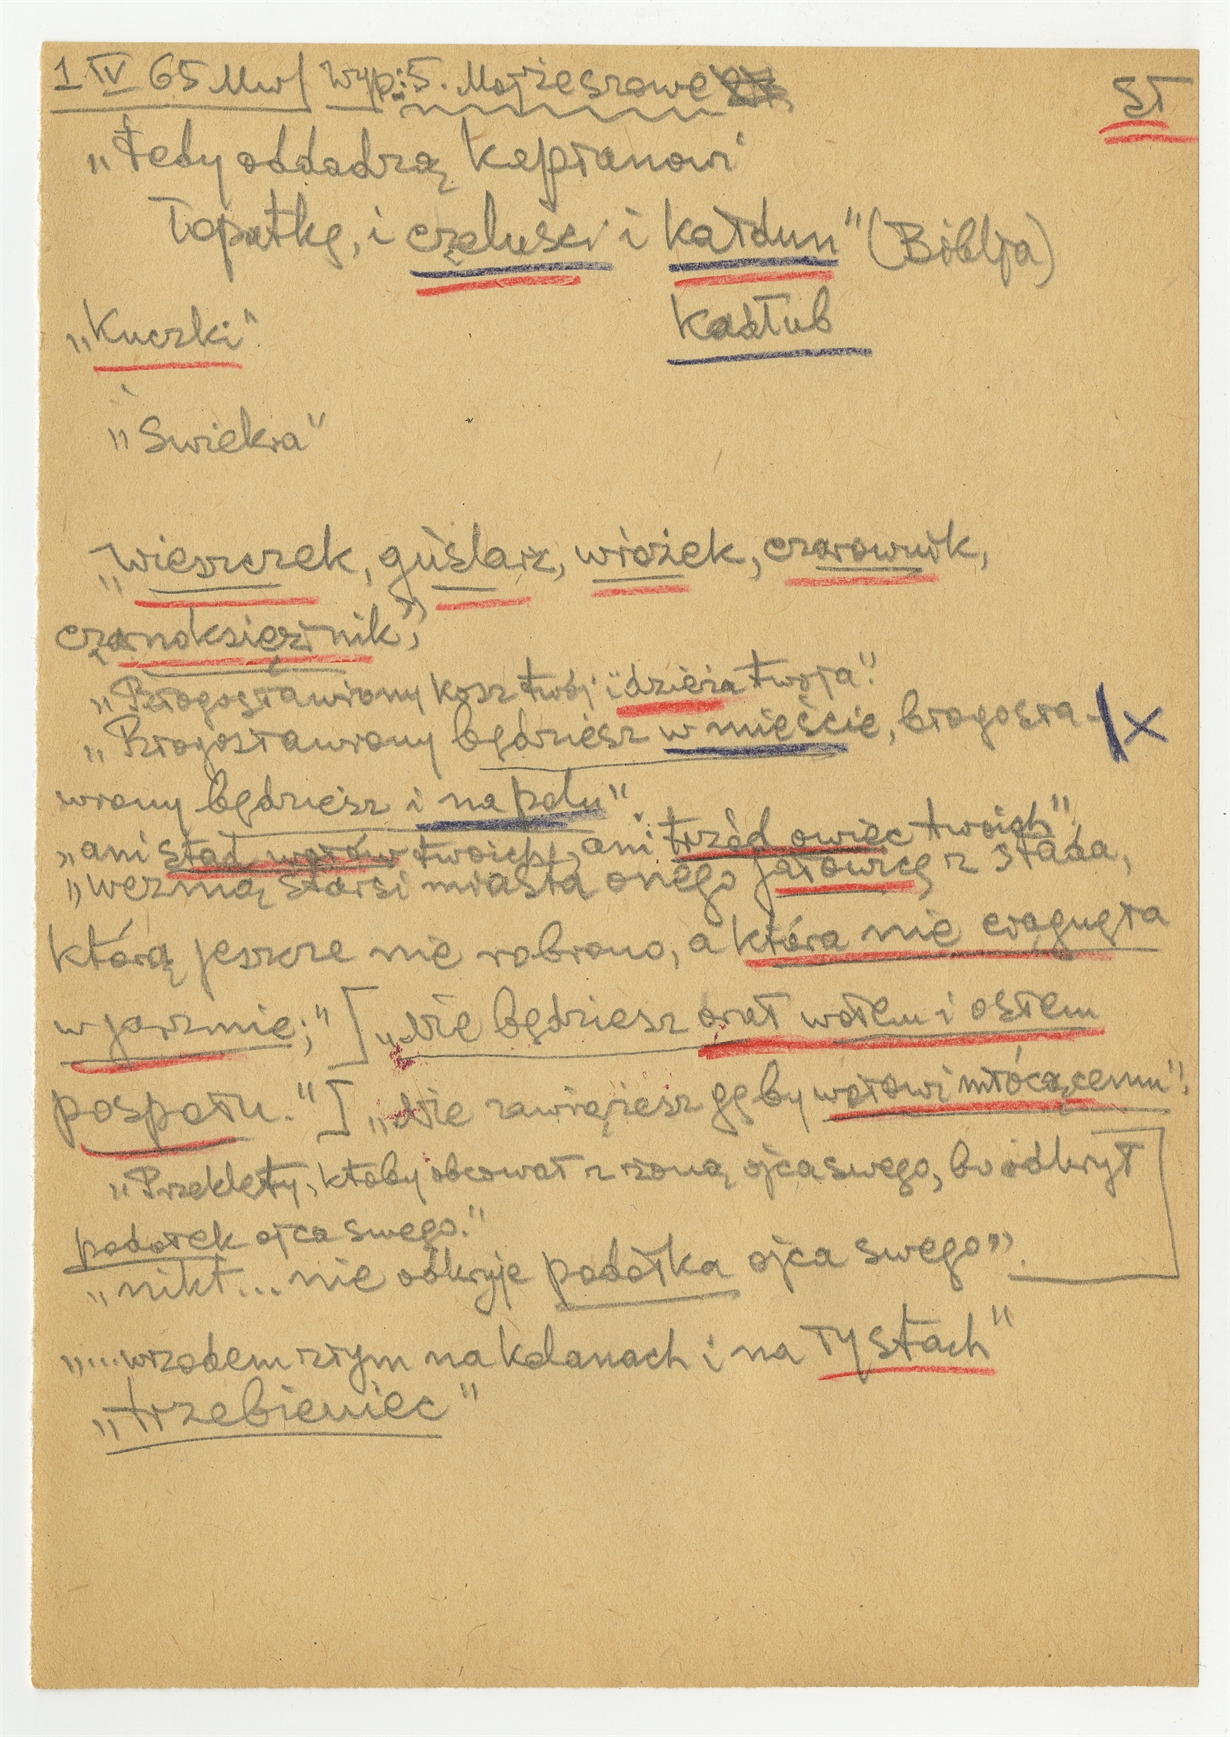 1 IV 65 Mw/ Wyp: 5. Mojżeszowe
ST
„Tedy oddadzą kapłanowi
łopatkę, i czeluści i kałdun" (Biblja)
„Kuczki"
kadłub
„Swiekra"
„Wieszczek, guślarz, wróżek, czarownik,
czarnoksiężnik",
„Błogosławiony kosz twój i dzieża twoja".
„Błogosławiony będziesz w mieście, błogosła-
wiony będziesz i na polu".
„ani stad wołów twoich, ani trzód owiec twoich".
„wezmą starsi miasta onego jałowicę z stada,
którą jeszcze nie robiono, a która nie ciągnęła
w jarzmie;"] „Nie będziesz orał wołem i osłem
pospołu."] „Nie zawiążesz gęby wołowi młócącemu".
„Przeklęty, ktoby obcował z żoną ojca swego, bo odkrył
podołek ojca swego."
„nikt... nie odkryje podołka ojca swego".
„...wrzodem złym na kolanach i na łystach"
„trzebieniec"